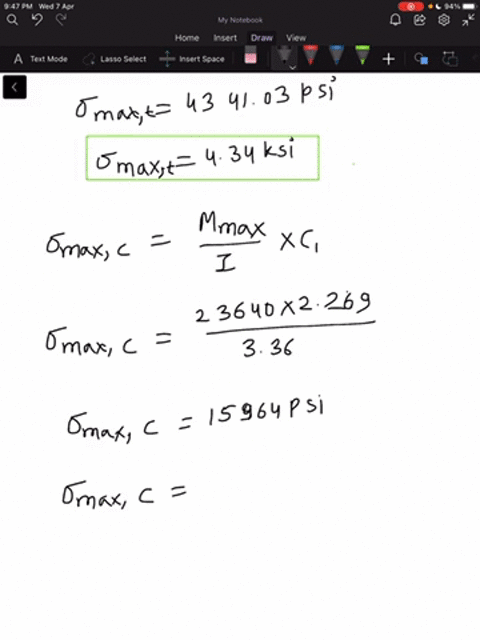 9:47 PM Wed 7 Apr
94%
My Notebook
Home Insert Draw View
Text Mode Lasso Select Insert Space
σmax,t= 4341.03 psi
σmax,t= 4.34 ksi
σmax, c = Mmax / I × C₁
σmax, c = 23640 × 2.269 / 3.36
σmax, c = 15964 psi
σmax, c =